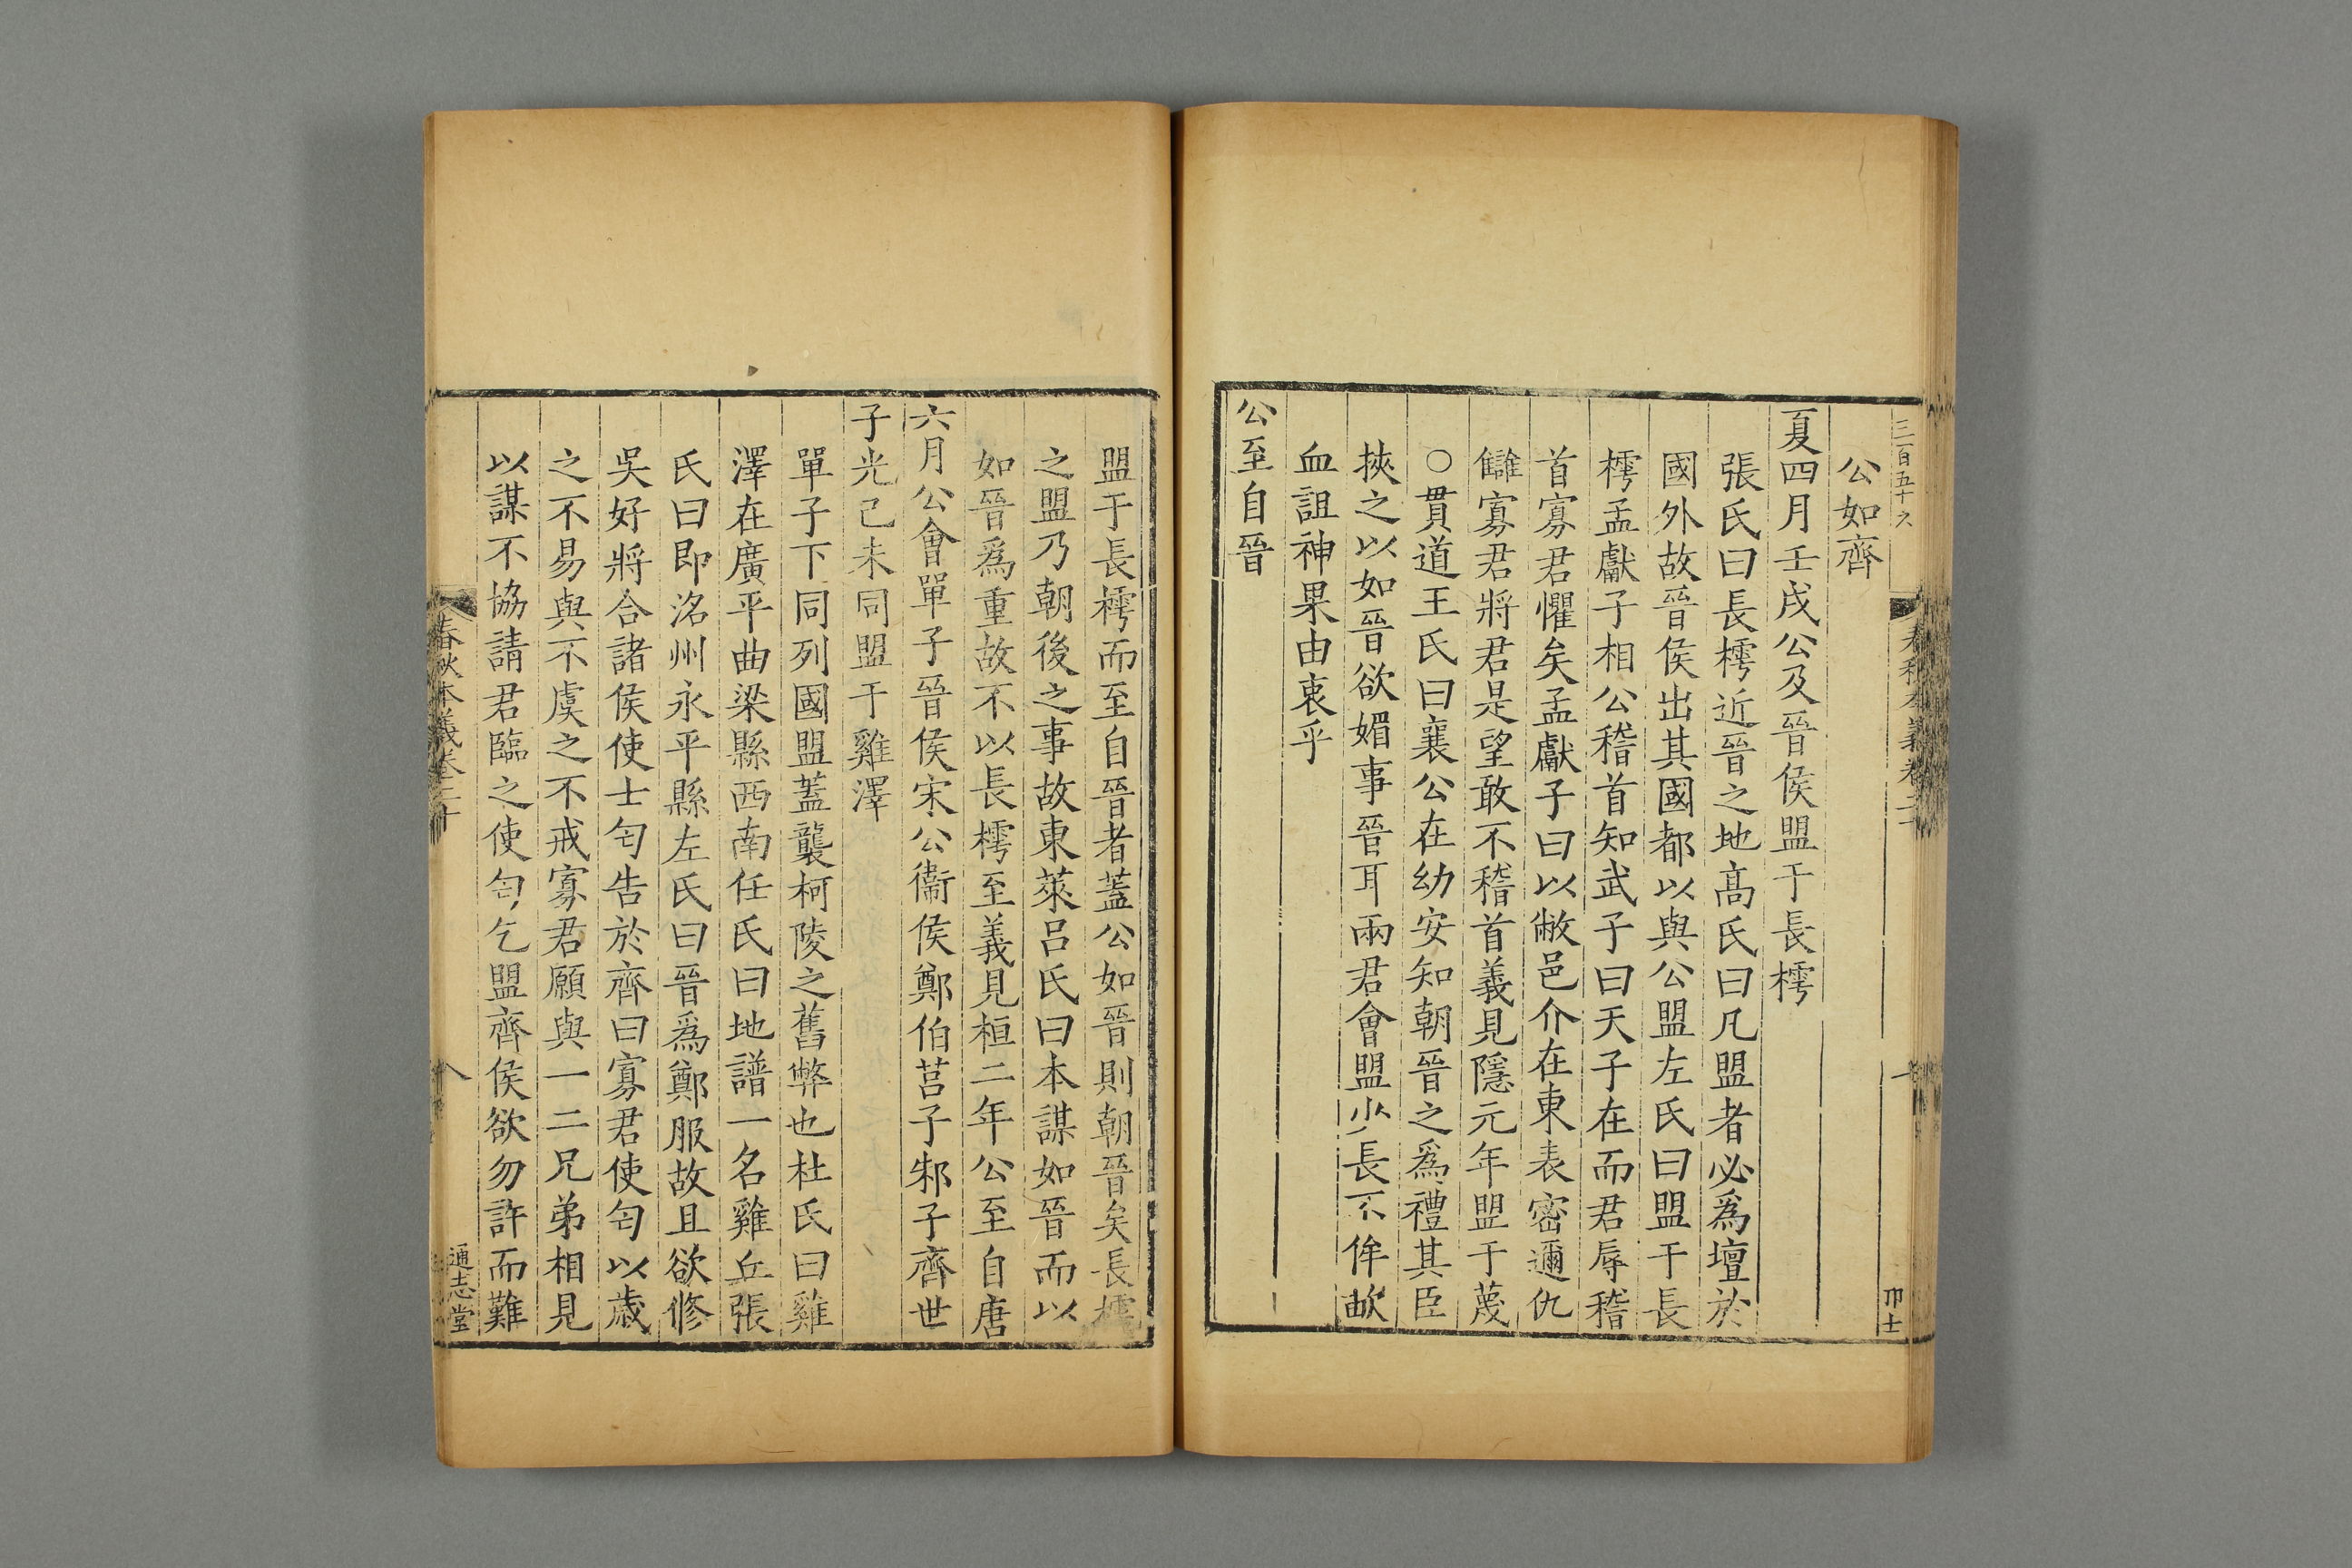 公如齊
夏四月壬戌公及晉侯盟于長樗
張氏曰長樗近晉之地髙氏曰凡盟者必爲壇於
國外故晉侯出其國都以與公盟左氏曰盟于長
樗孟獻子相公稽首知武子曰天子在而君辱稽
首寡君懼矣孟獻子曰以敝邑介在東表密邇仇
讎寡君將君是望敢不稽首義見隱元年盟于蔑
○貫道王氏曰襄公在幼安知朝晉之爲禮其臣
挾之以如晉欲媚事晉耳兩君會盟少長不侔歃
血詛神果由衷乎
公至自晉
盟于長樗而至自晉者蓋公如晉則朝晉矣長樗
之盟乃朝後之事故東萊呂氏曰本謀如晉而以
如晉爲重故不以長樗至義見桓二年公至自唐
六月公會單子晉侯宋公衞侯鄭伯莒子邾子齊世
子光己未同盟于雞澤
單子下同列國盟蓋襲柯陵之舊弊也杜氏曰雞
澤在廣平曲梁縣西南任氏曰地譜一名雞丘張
氏曰即洺州永平縣左氏曰晉爲鄭服故且欲修
吳好將合諸侯使士匄告於齊曰寡君使匄以歲
之不易與不虞之不戒寡君願與一二兄弟相見
以謀不協請君臨之使匄乞盟齊侯欲勿許而難
春秋本義卷二十
八
通志堂
三百五十六